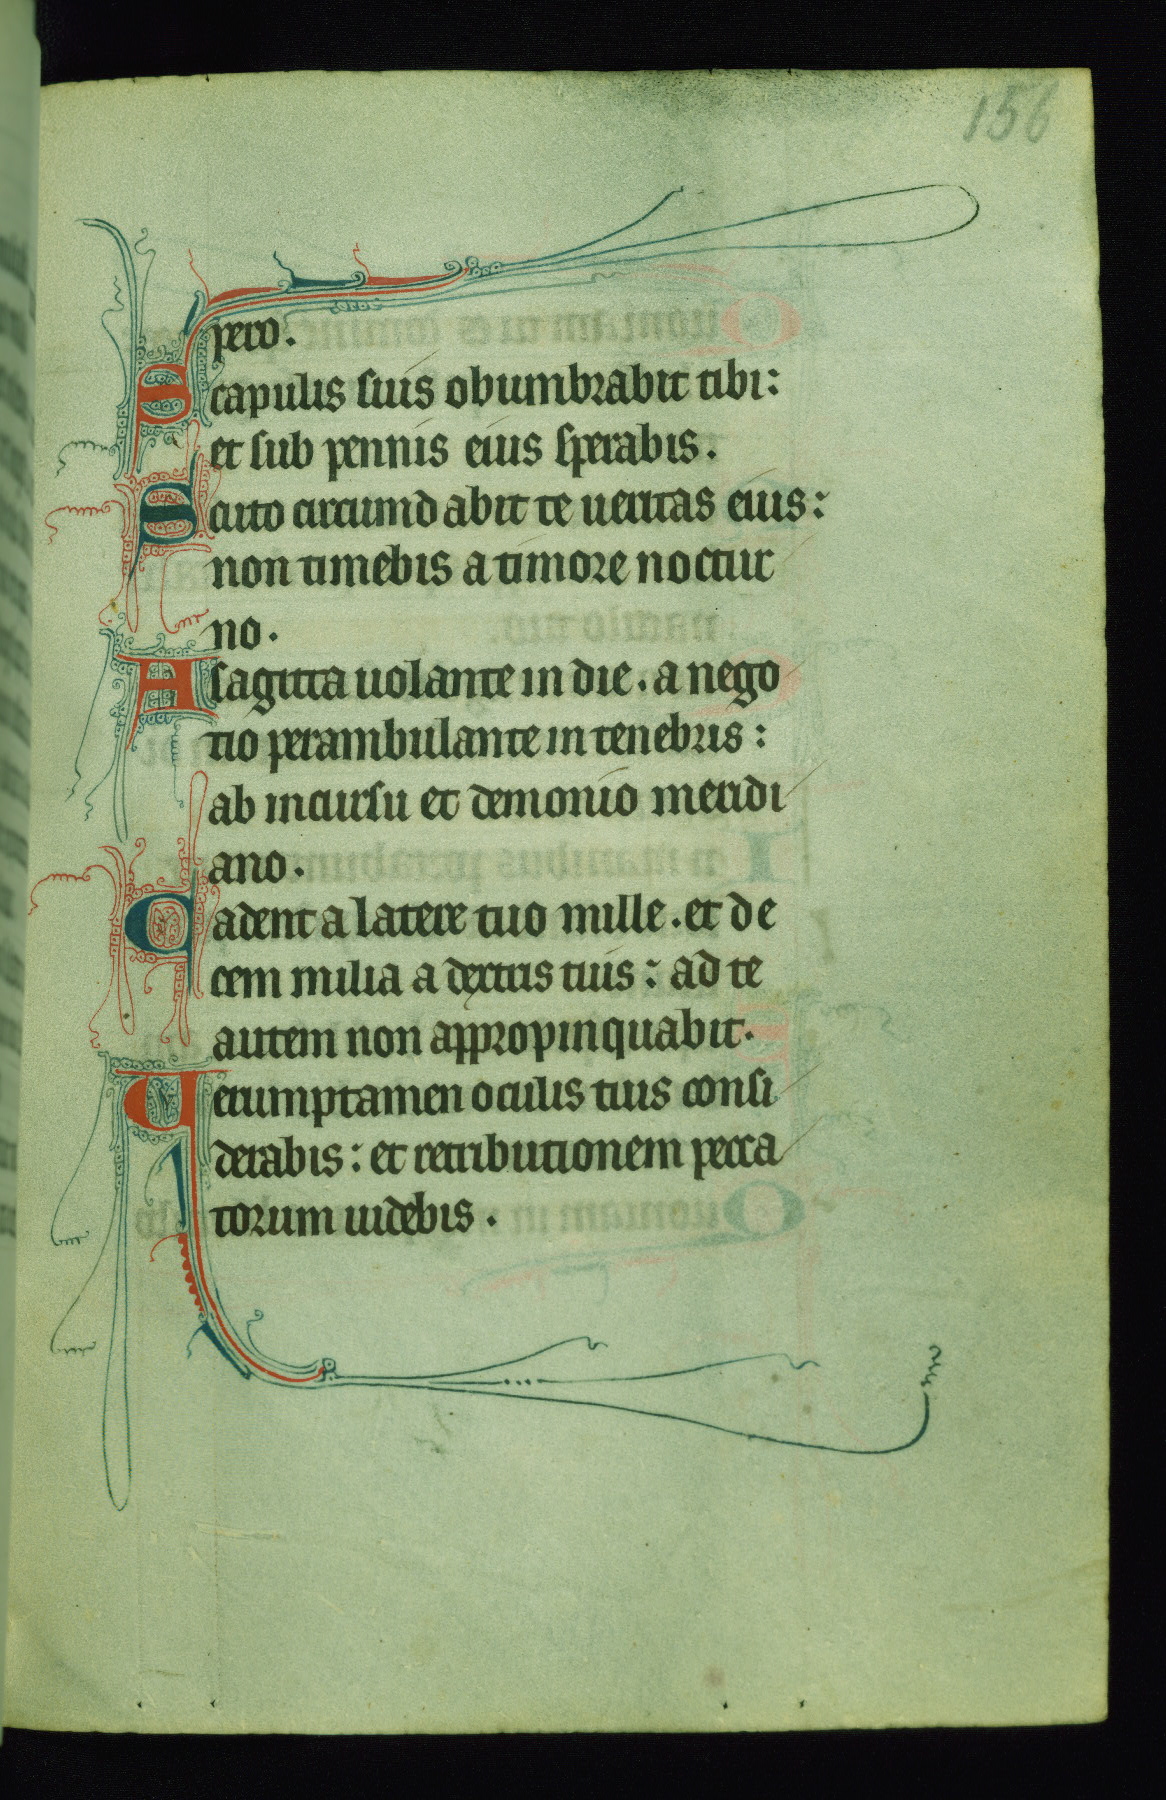 156
pero.
Scapulis suis obumbrabit tibi:
et sub pennis eius sperabis.
Scuto circumdabit te ueritas eius:
non timebis a timore noctur
no.
A sagitta uolante in die. a nego
tio perambulante in tenebris:
ab incursu et demonio meridi
ano.
Cadent a latere tuo mille. et de
cem milia a dextris tuis: ad te
autem non appropinquabit.
Uerumptamen oculis tuis consi
derabis: et retributionem pecca
torum uidebis.